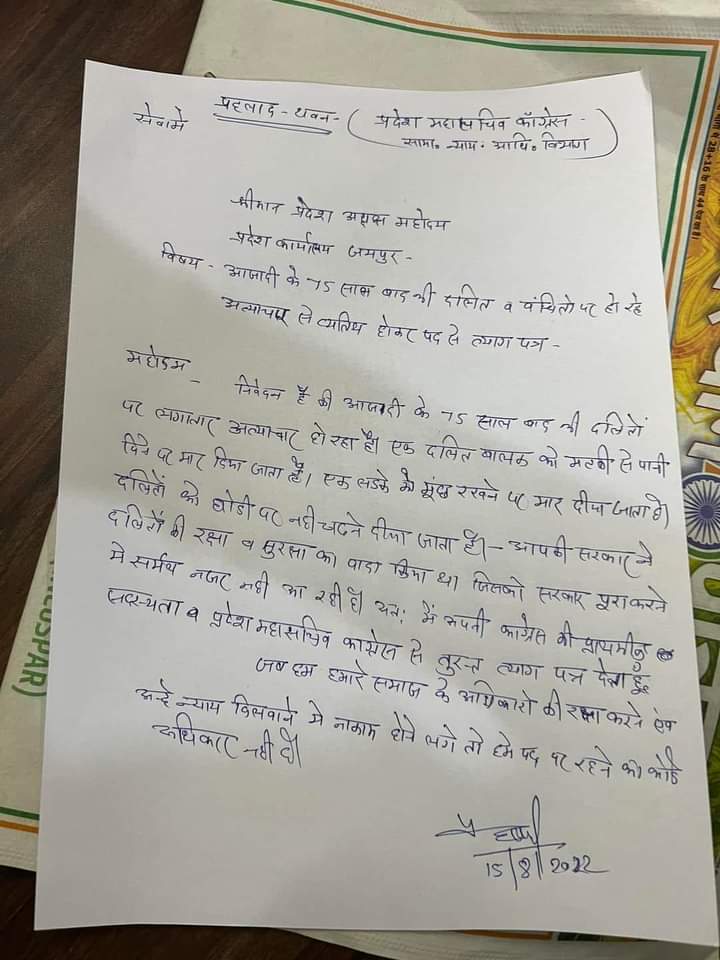 प्रहलाद - थवन - (प्रदेश महासचिव काँग्रेस -
सामा. न्याय. आधि. विभाग)
सेवामे
श्रीमान प्रदेश अध्यक्ष महोदय
प्रदेश कार्यालय जयपुर -
विषय - आजादी के 75 साल बाद भी दलित व वंचितो पर हो रहे
अत्याचार से व्यथित होकर पद से त्याग पत्र -
महोदय - निवेदन है की आजादी के 75 साल बाद भी दलितों
पर लगातार अत्याचार हो रहा है। एक दलित बालक को मटकी से पानी
पिने पर मार दिया जाता है। एक लडके को मूंछ रखने पर मार दीया जाता है।
दलितों को घोडी पर नही चढने दीया जाता है। - आपकी सरकार ने
दलितों की रक्षा व सुरक्षा का वादा किया था जिसको सरकार पूरा करने
मे सर्मथ नजर नही आ रही है। अतः मैं अपनी काग्रेस की प्राथमीक
सदस्यता व प्रदेश महासचिव काग्रेस से तुरन्त त्याग पत्र देता हूँ
जब हम हमारे समाज के अधिकारो की रक्षा करने एंव
उन्हे न्याय दिलवाने मे नाकाम होने लगे तो हमे पद पर रहने का कोई
अधिकार नही है।
15/8/2022